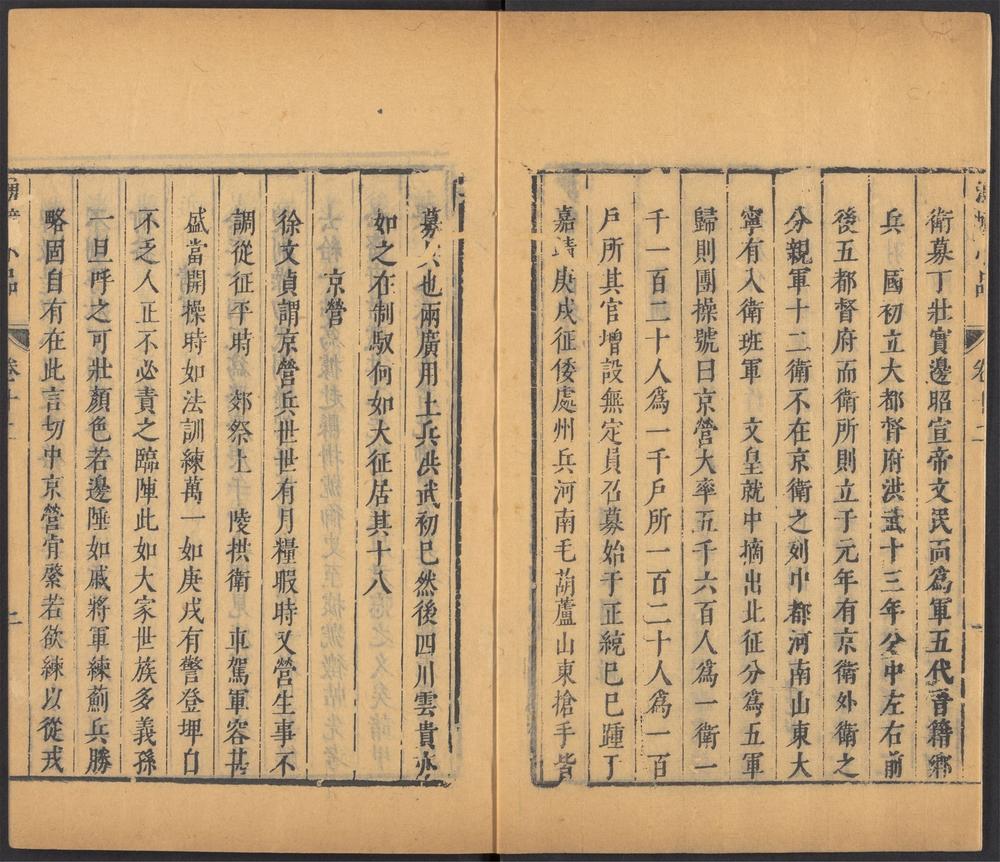 湧幢小品
卷十二
衛募丁壯實邊昭宣帝文民面爲軍五代晉籍鄉
兵 國初立大都督府洪武十三年分中左右前
後五都督府而衛所則立于元年有京衛外衛之
分親軍十二衛不在京衛之列中都河南山東大
寧有入衛班軍 文皇就中摘出北征分爲五軍
歸則團操號曰京營大率五千六百人爲一衛一
千一百二十人爲一千戶所一百二十人爲一百
戶所其官增設無定員召募始于正統己巳踵于
嘉靖庚戌征倭處州兵河南毛葫蘆山東搶手皆
募兵也兩廣用土兵洪武初已然後四川雲貴亦
如之在制馭何如大征居其十八
京營
徐文貞謂京營兵世世有月糧暇時又營生事不
調從征平時 郊祭上 陵拱衛 車駕軍容甚
盛當開操時如法訓練萬一如庚戌有警登埤自
不乏人正不必責之臨陣此如大家世族多義孫
一旦呼之可壯顏色若邊陲如戚將軍練薊兵勝
略固自有在此言切中京營肯綮若欲練以從戎
湧幢小品
卷十二
二